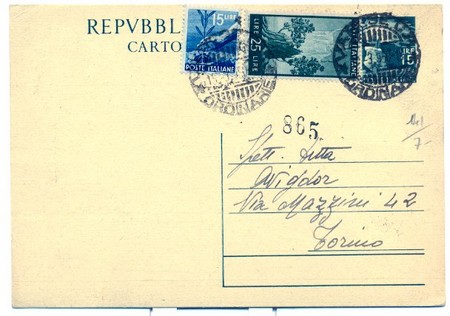 REPVBBL
CARTO
15 LIRE
POSTE ITALIANE
LIRE 25 LIRE
LIRE
15
ORDINARIE
ORDINARIE
865
7-
Spett. Ditta
Aviddor
Via Mazzini 42
Torino